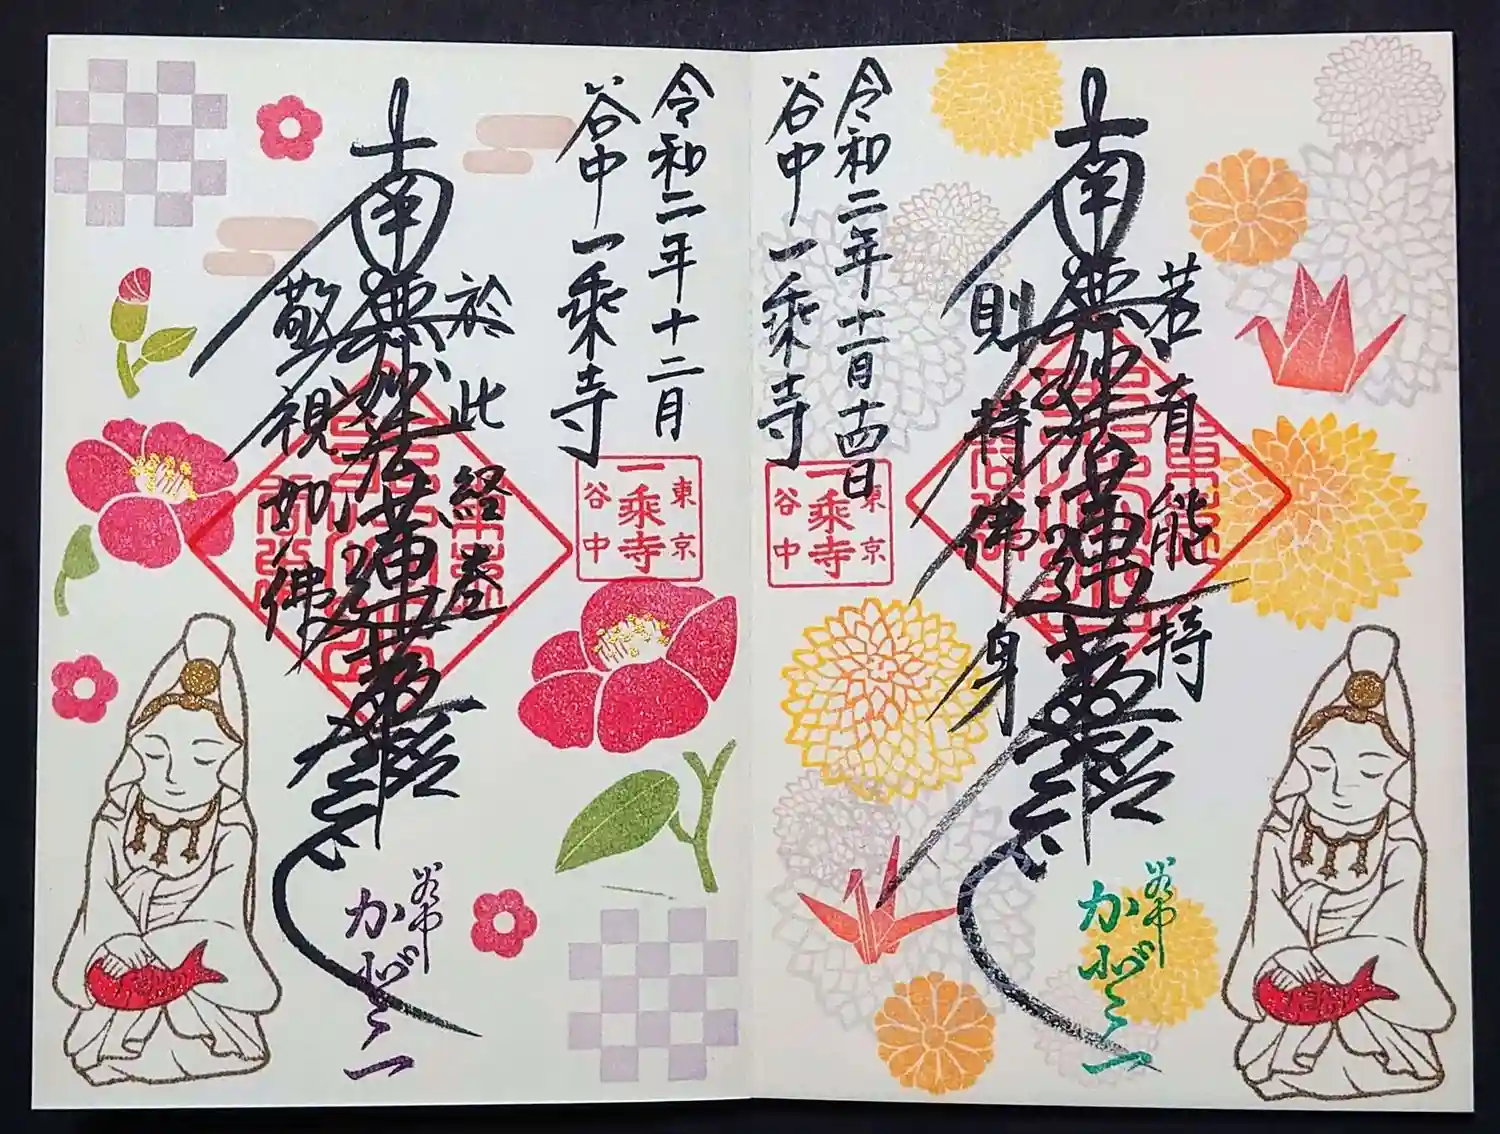 令和二年十一月十四日
谷中一乗寺
若有能持
南無妙法蓮華経
則持佛身
東京
一乗寺
谷中
令和二年十二月
谷中一乗寺
於此経巻
南無妙法蓮華経
敬視如佛
東京
一乗寺
谷中